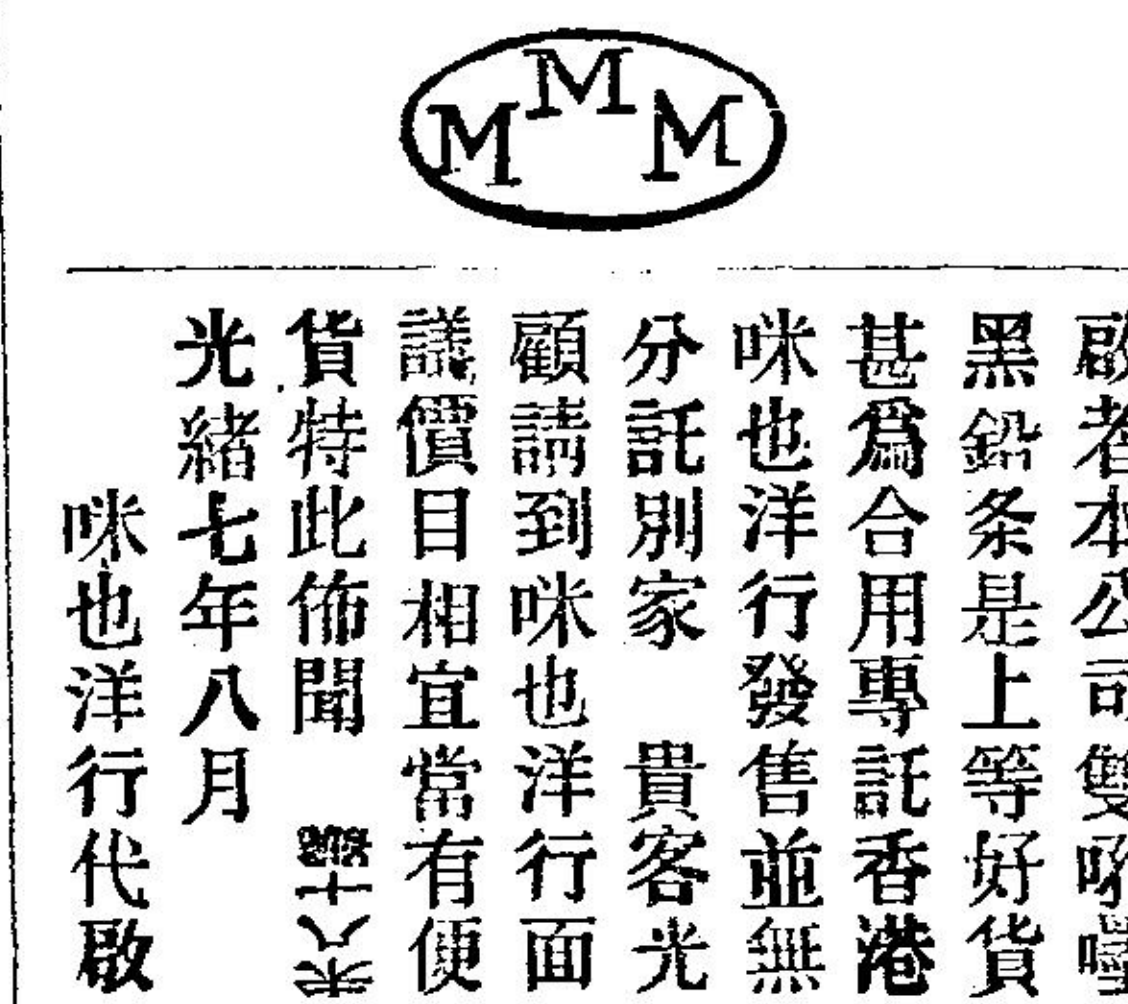 MMM
啟者本公司雙
黑鉛条是上等好貨
甚爲合用專託香港
咪也洋行發售並無
分託別家 貴客光
顧請到咪也洋行面
議價目相宜當有便
貨特此佈聞
光緒七年八月
咪也洋行代啟